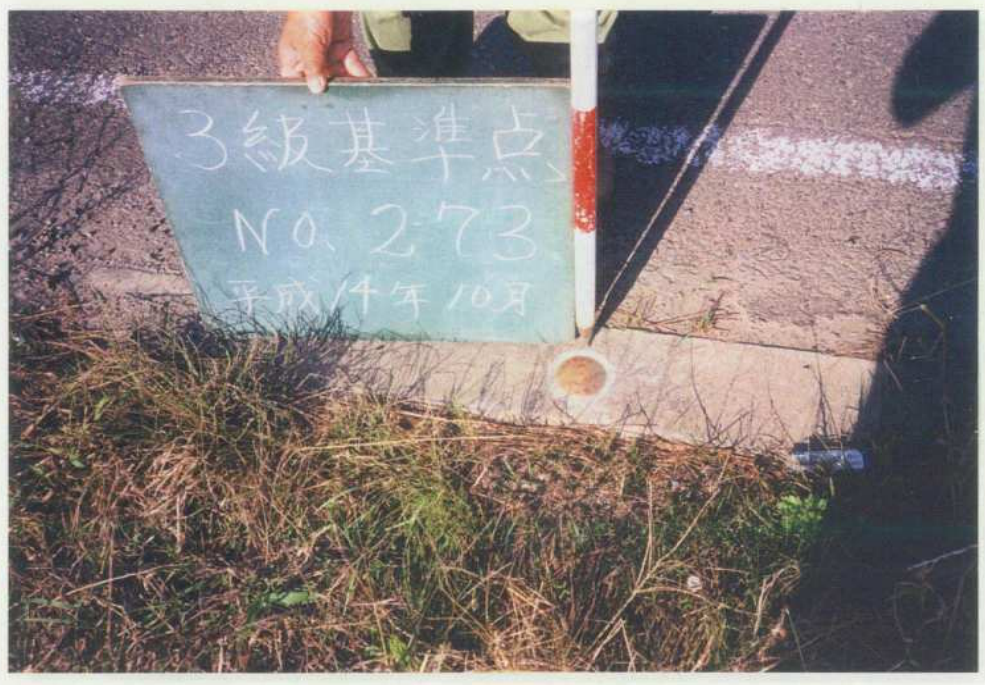 3級基準点
NO. 273
平成14年10月